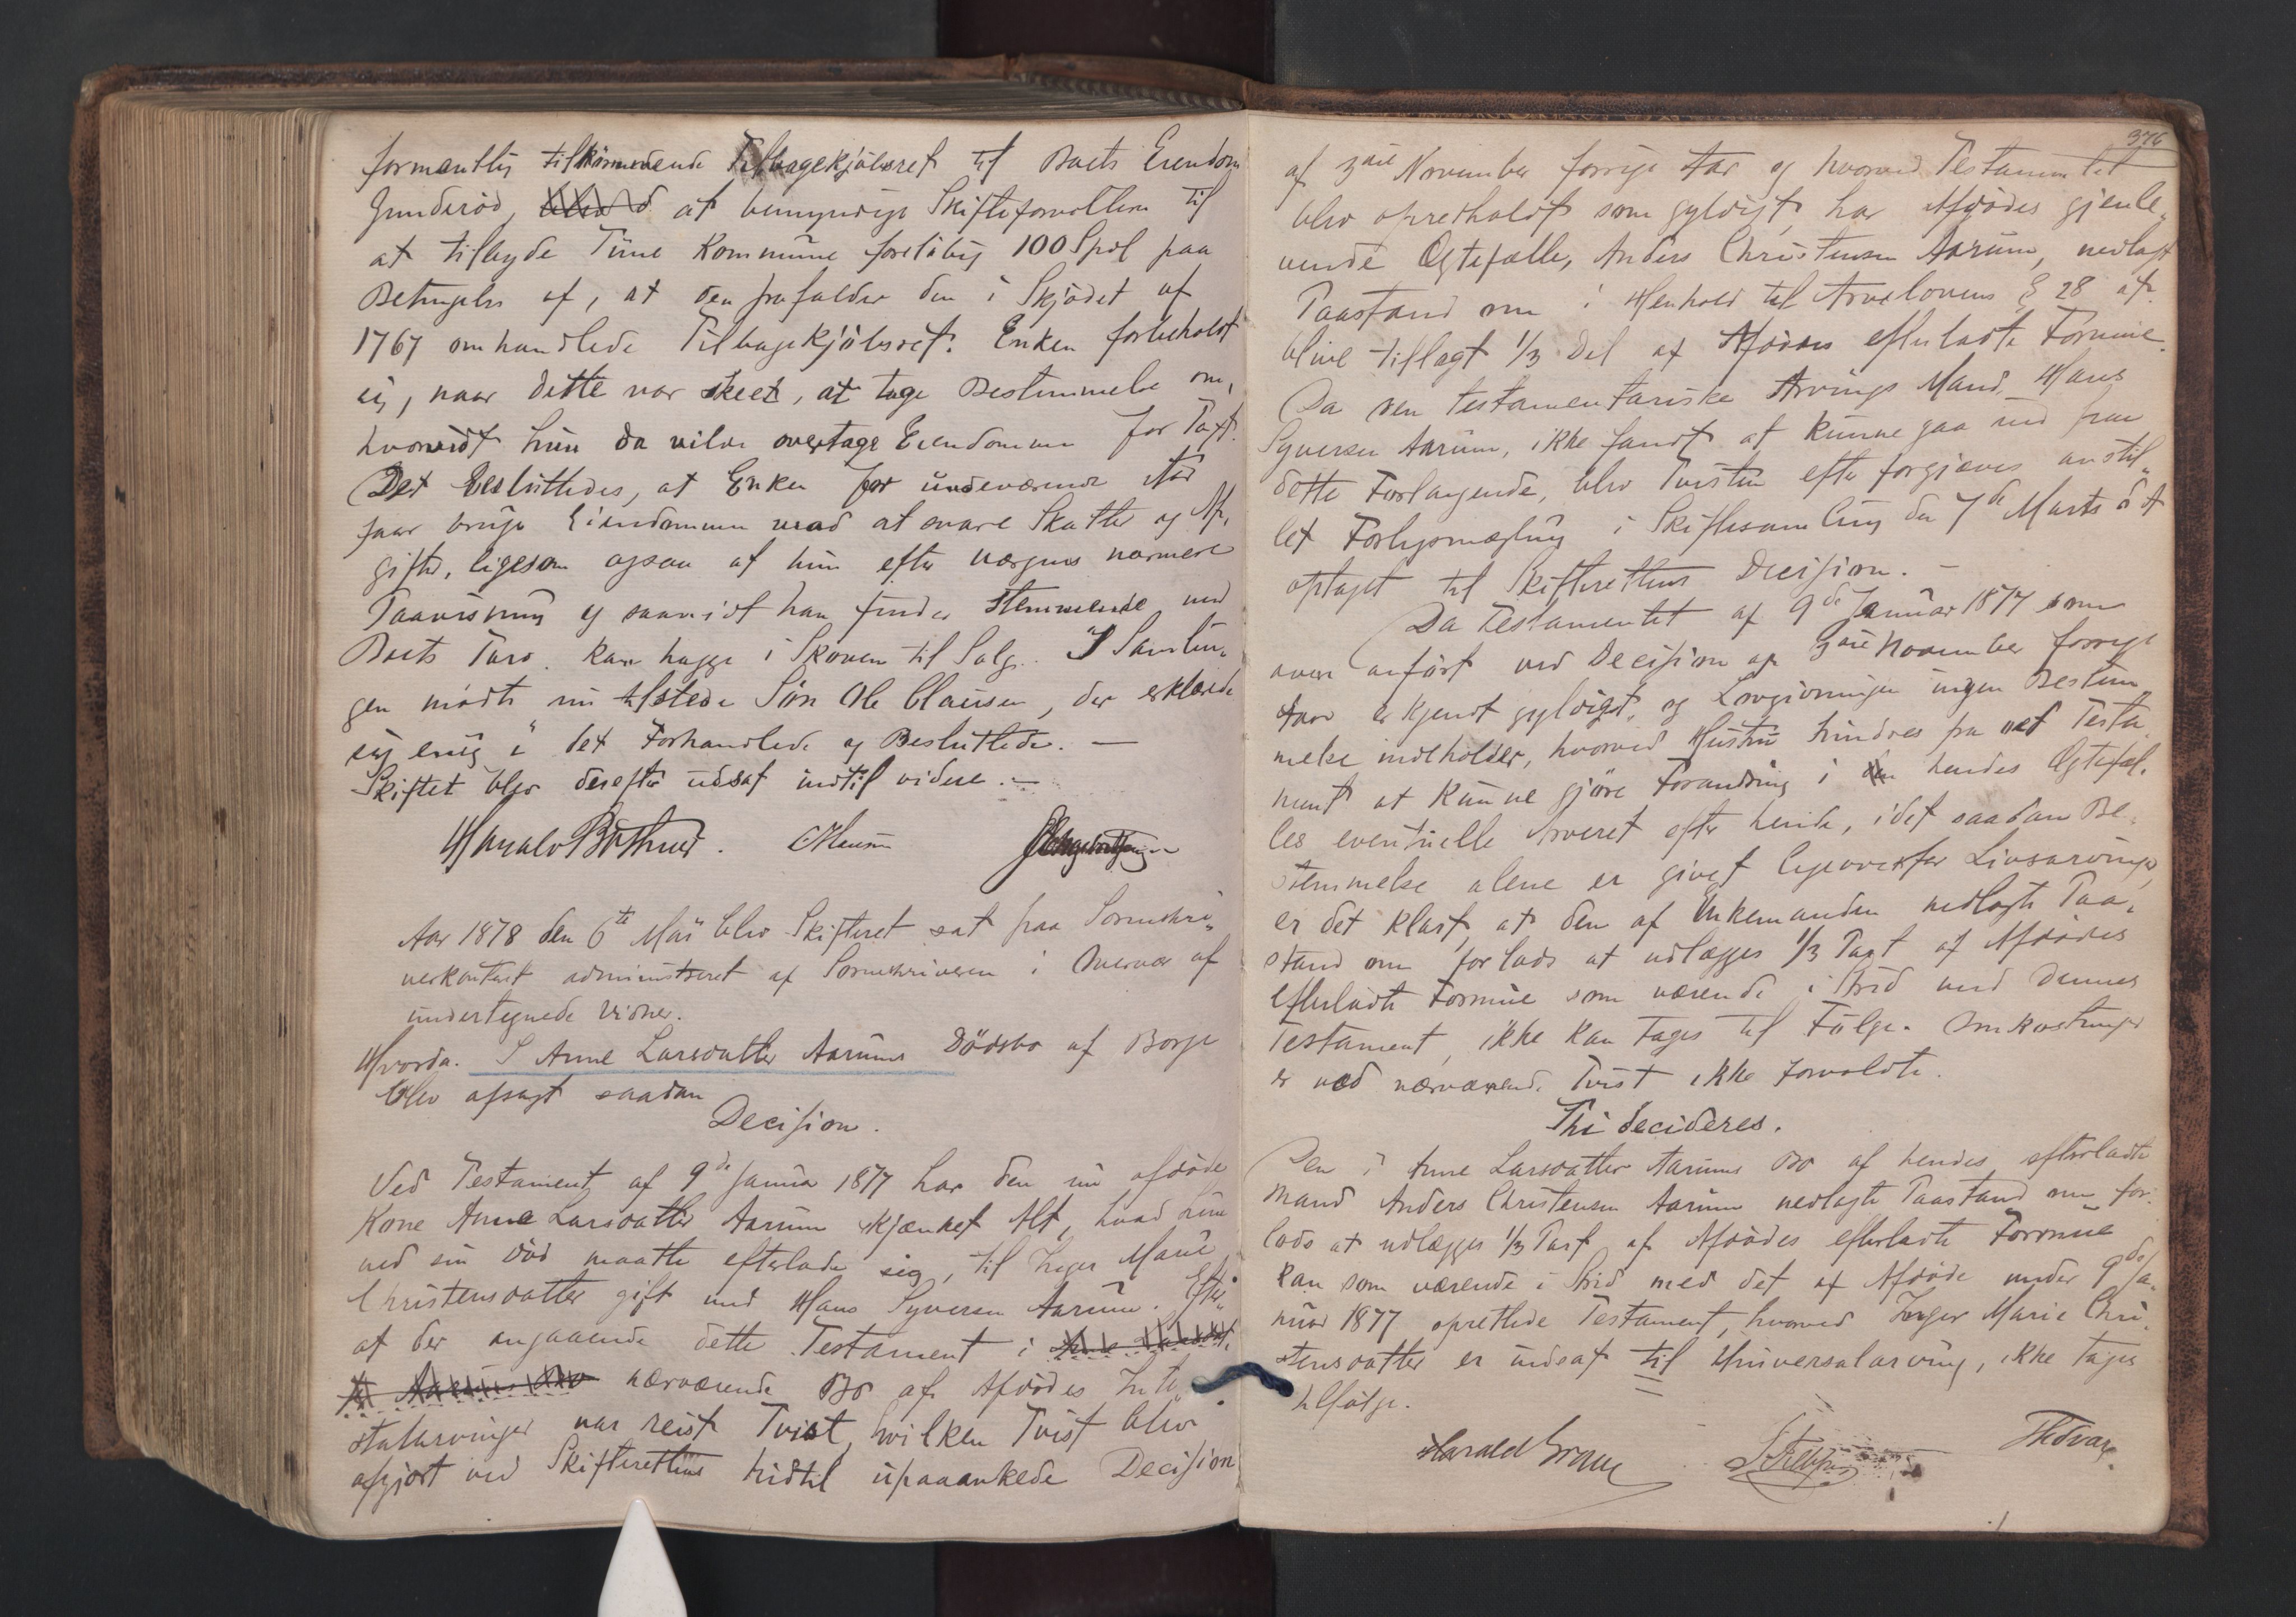 formentlig tilkommende Tilbagekjøbsret til Boets Eiendom
Gunderød, at bemyndige Skifteforvalteren til
at tilbyde Tune Kommune foreløbig 100 Spdl paa
Betingelse af, at den frafalder den i Skjødet af
1767 omhandlede Tilbagekjøbsret. Enken forbeholdt
sig, naar dette var skeet, at tage Bestemmelse om,
hvorvidt hun da vilde overtage Eiendommen for Taxt.
Det besluttedes, at Enken for indeværende Aar
faar bruge Eiendommen mod at svare Skatter og Af-
gifter, ligesom ogsaa at hun efter Værgens nærmere
Paavisning og saavidt han finder stemmende med
Boets Tarv kan hugge i Skoven til Salg. I Samlin-
gen mødte nu tilstede Søn Ole Clausen, der erklærede
sig enig i det Forhandlede og Besluttede. —
Skiftet blev derefter udsat indtil videre. —
Harald Bothner. OClausen
Aar 1878 den 6te Mai blev Skifteret sat paa Sorenskri-
verkontoret administreret af Sorenskriveren i Overvær af
undertegnede Vidner.
Hvorda. I Anne Larsdatter Aarums Dødsbo af Borge
blev afsagt saadan
Decision.
Ved Testament af 9de Januar 1877 har den nu afdøde
Kone Anne Larsdatter Aarum skjænket Alt, hvad hun
ved sin Død maatte efterlade sig, til Inger Marie
Christensdatter gift med Hans Syversen Aarum. Efter
at der angaaende dette Testament i
nærværende Bo af Afdødes Inte-
statarvinger var reist Tvist, hvilken Tvist blev
afgjort ved Skifterettens hidtil upaaankede Decision
376
af 3die November forrige Aar og hvorved Testamentet
blev opretholdt som gyldigt, har Afdødes gjenle-
vende Ægtefælle, Anders Christensen Aarum, nedlagt
Paastand om i Henhold til Arvelovens § 28 at
blive tillagt 1/3 Del af Afdødes efterladte Formue.
Da den testamentariske Arvings Mand, Hans
Syversen Aarum, ikke fandt at kunne gaa ind paa
dette Forlangende, blev Tvisten efter forgjæves anstil-
let Forligsmægling i Skiftesamling den 7de Marts d. A
optaget til Skifterettens Decision. —
Da Testamentet af 9de Januar 1877 som
oven anført ved Decision af 3die November forrige
Aar er kjendt gyldigt, og Lovgivningen ingen Bestem-
melse indeholder, hvorved Hustru hindres fra ved Testa-
ment at kunne gjøre Forandring i hendes Ægtefæl-
les eventuelle Arveret efter hende, idet saadan Be-
stemmelse alene er givet ligeoverfor Livsarvinger,
er det klart, at den af Enkemanden nedlagte Paa-
stand om forlods at udlægges 1/3 Part af Afdødes
efterladte Formue som værende i Strid med dennes
Testament, ikke kan tages til Følge. Omkostninger
er ved nærværende Tvist ikke forvoldte.
Thi decideres.
Den i Anne Larsdatter Aarums Bo af hendes efterladte
Mand Anders Christensen Aarum nedlagte Paastand om for-
lods at udlægges 1/3 Part af Afdødes efterladte Formue
kan som værende i Strid med det af Afdøde under 9de Ja-
nuar 1877 oprettede Testament, hvorved Inger Marie Chri-
stensdatter er indsat til Universalarving, ikke tages
tilfølge.
Harald